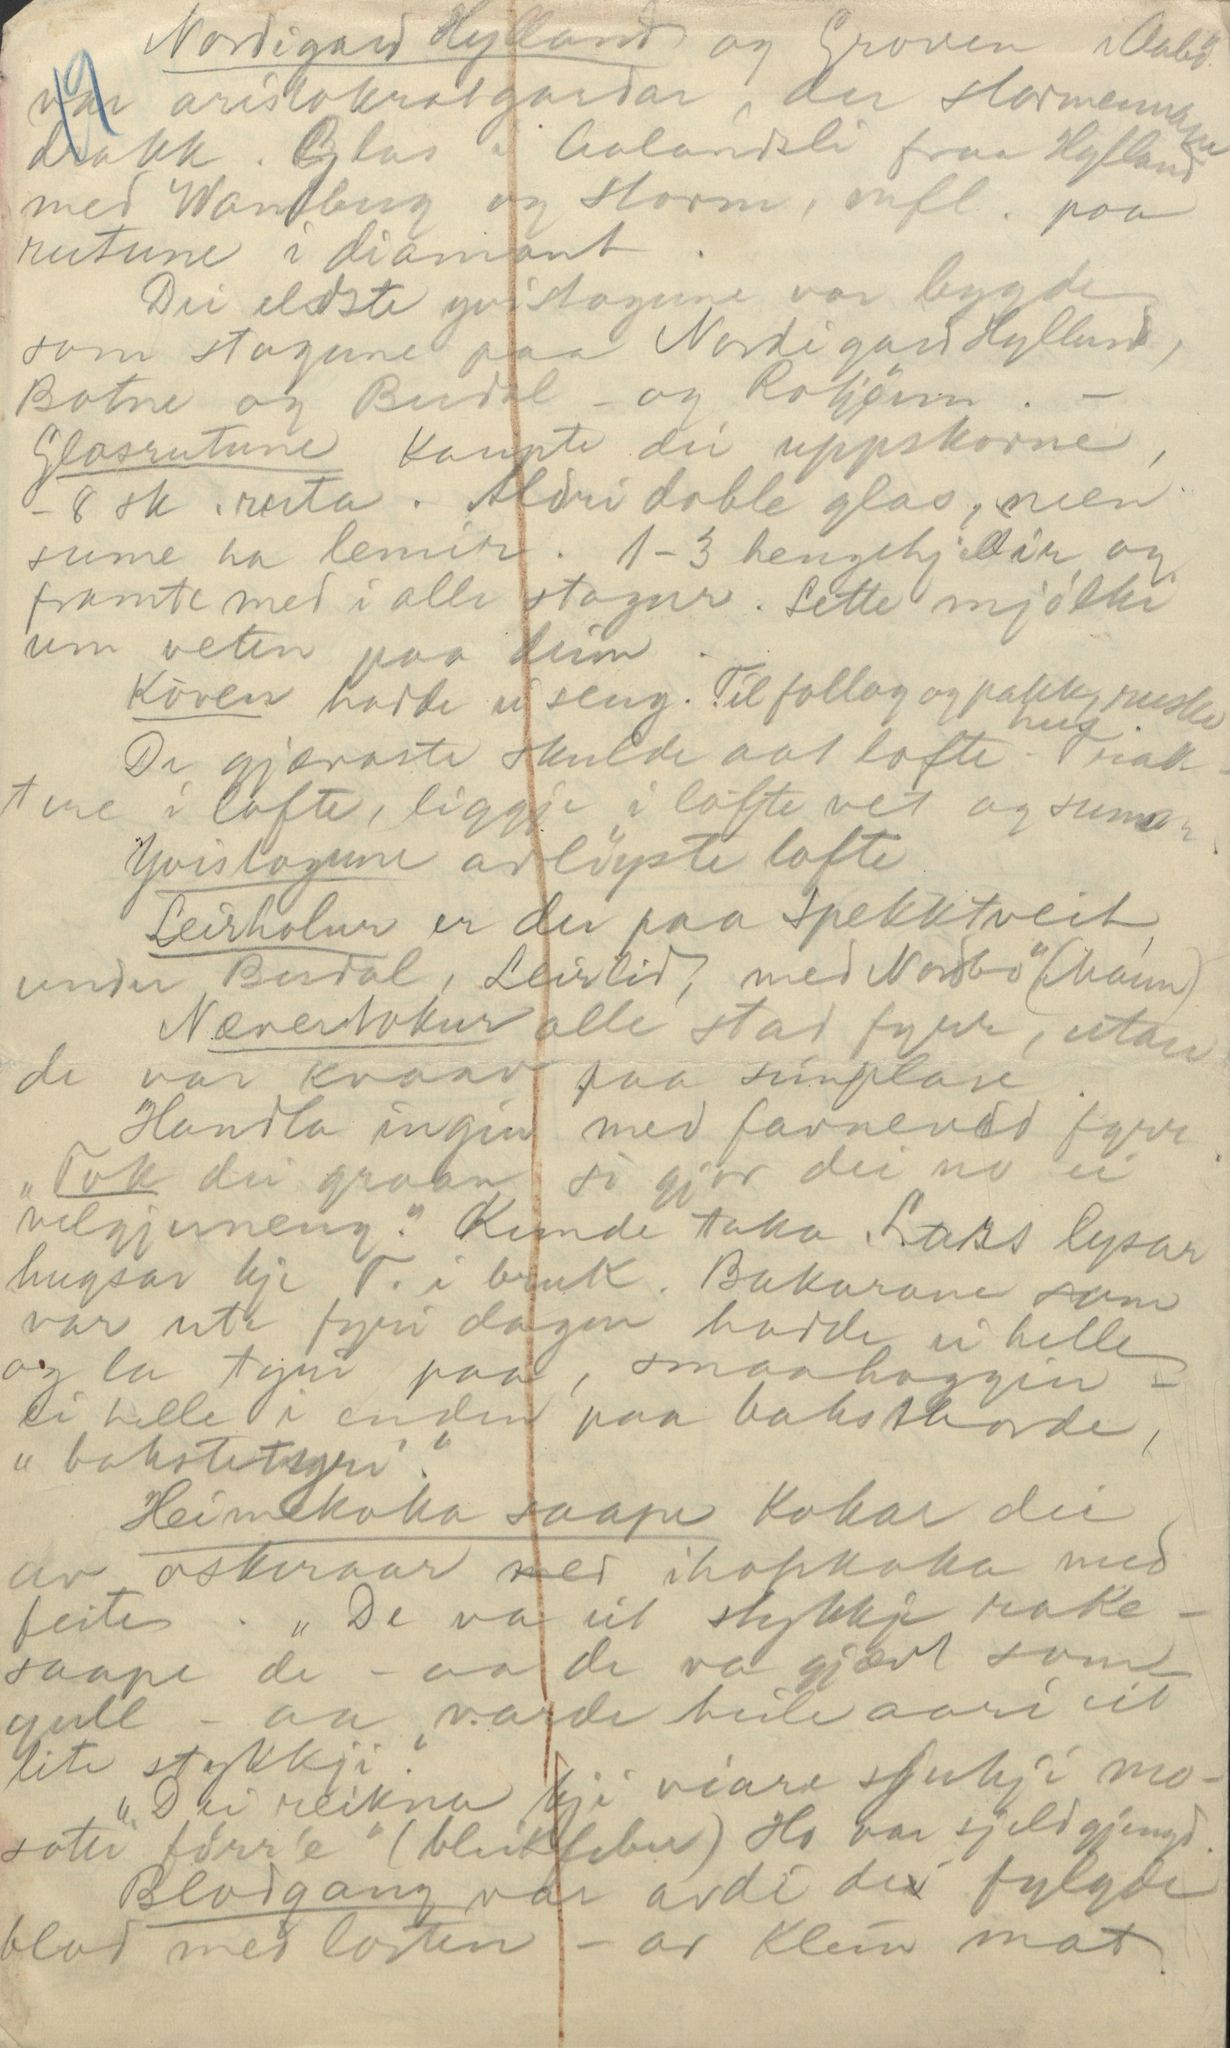 Nordigard Hylland og Groven i Aabø.
var aristokratgardar, der stormennane
drakk. Glas i Aalandsli fraa Hylland
med Wamberg og Storm, mfl. paa
rutune i diamant.
Dei eldste yvistogune var bygde
som stogune paa Nordigard Hylland,
Botne og Berdal - og Rotjønn. -
Glasrutune kaupte dei uppskorne,
- 8 sk. ruta. Aldri doble glas, men
sume ha lemir. 1-3 hengehjellir og
framte med i alle stogur. Sette mjølki
um veten paa deim.
Köven hadde ei seng. Til follog og pakk,
De gjævaste skulde aat lofte
i lofte, liggje i lofte vet og sumar.
Yvistogune avløyste lofte
Leirholur er der paa Spekktveit,
under Berdal, Leirlid, med Nordbö
Nævertokur alle stad fyrr, utan
de var kvaav paa
Handla ingin med favneved fyrr.
"Tok dei graan, so gjor dei no ei
velgjerneng." Kunde taka Lars lysar
hugsar kje T. i bruk. Bakarane som
var ute fyri dagen hadde ei helle
og la tyri paa, smaahoggin -
ei helle i enden paa bakstborde,
"bakstetyri".
Heimekoka saape kokar dei
av oskeraar med ihopkoka med
feite. "De va eit stykkje rake-
saape de - aa de va gjævt som
gull - aa varde heile aari eit
lite stykkji."
"Dei reikna kji viare sjukji mo-
sotti förr'e" (bleikfeber) Ho var sjeldgjengd.
Blodgang var avdi dei fylgde
blod med lorten - av klein mat.